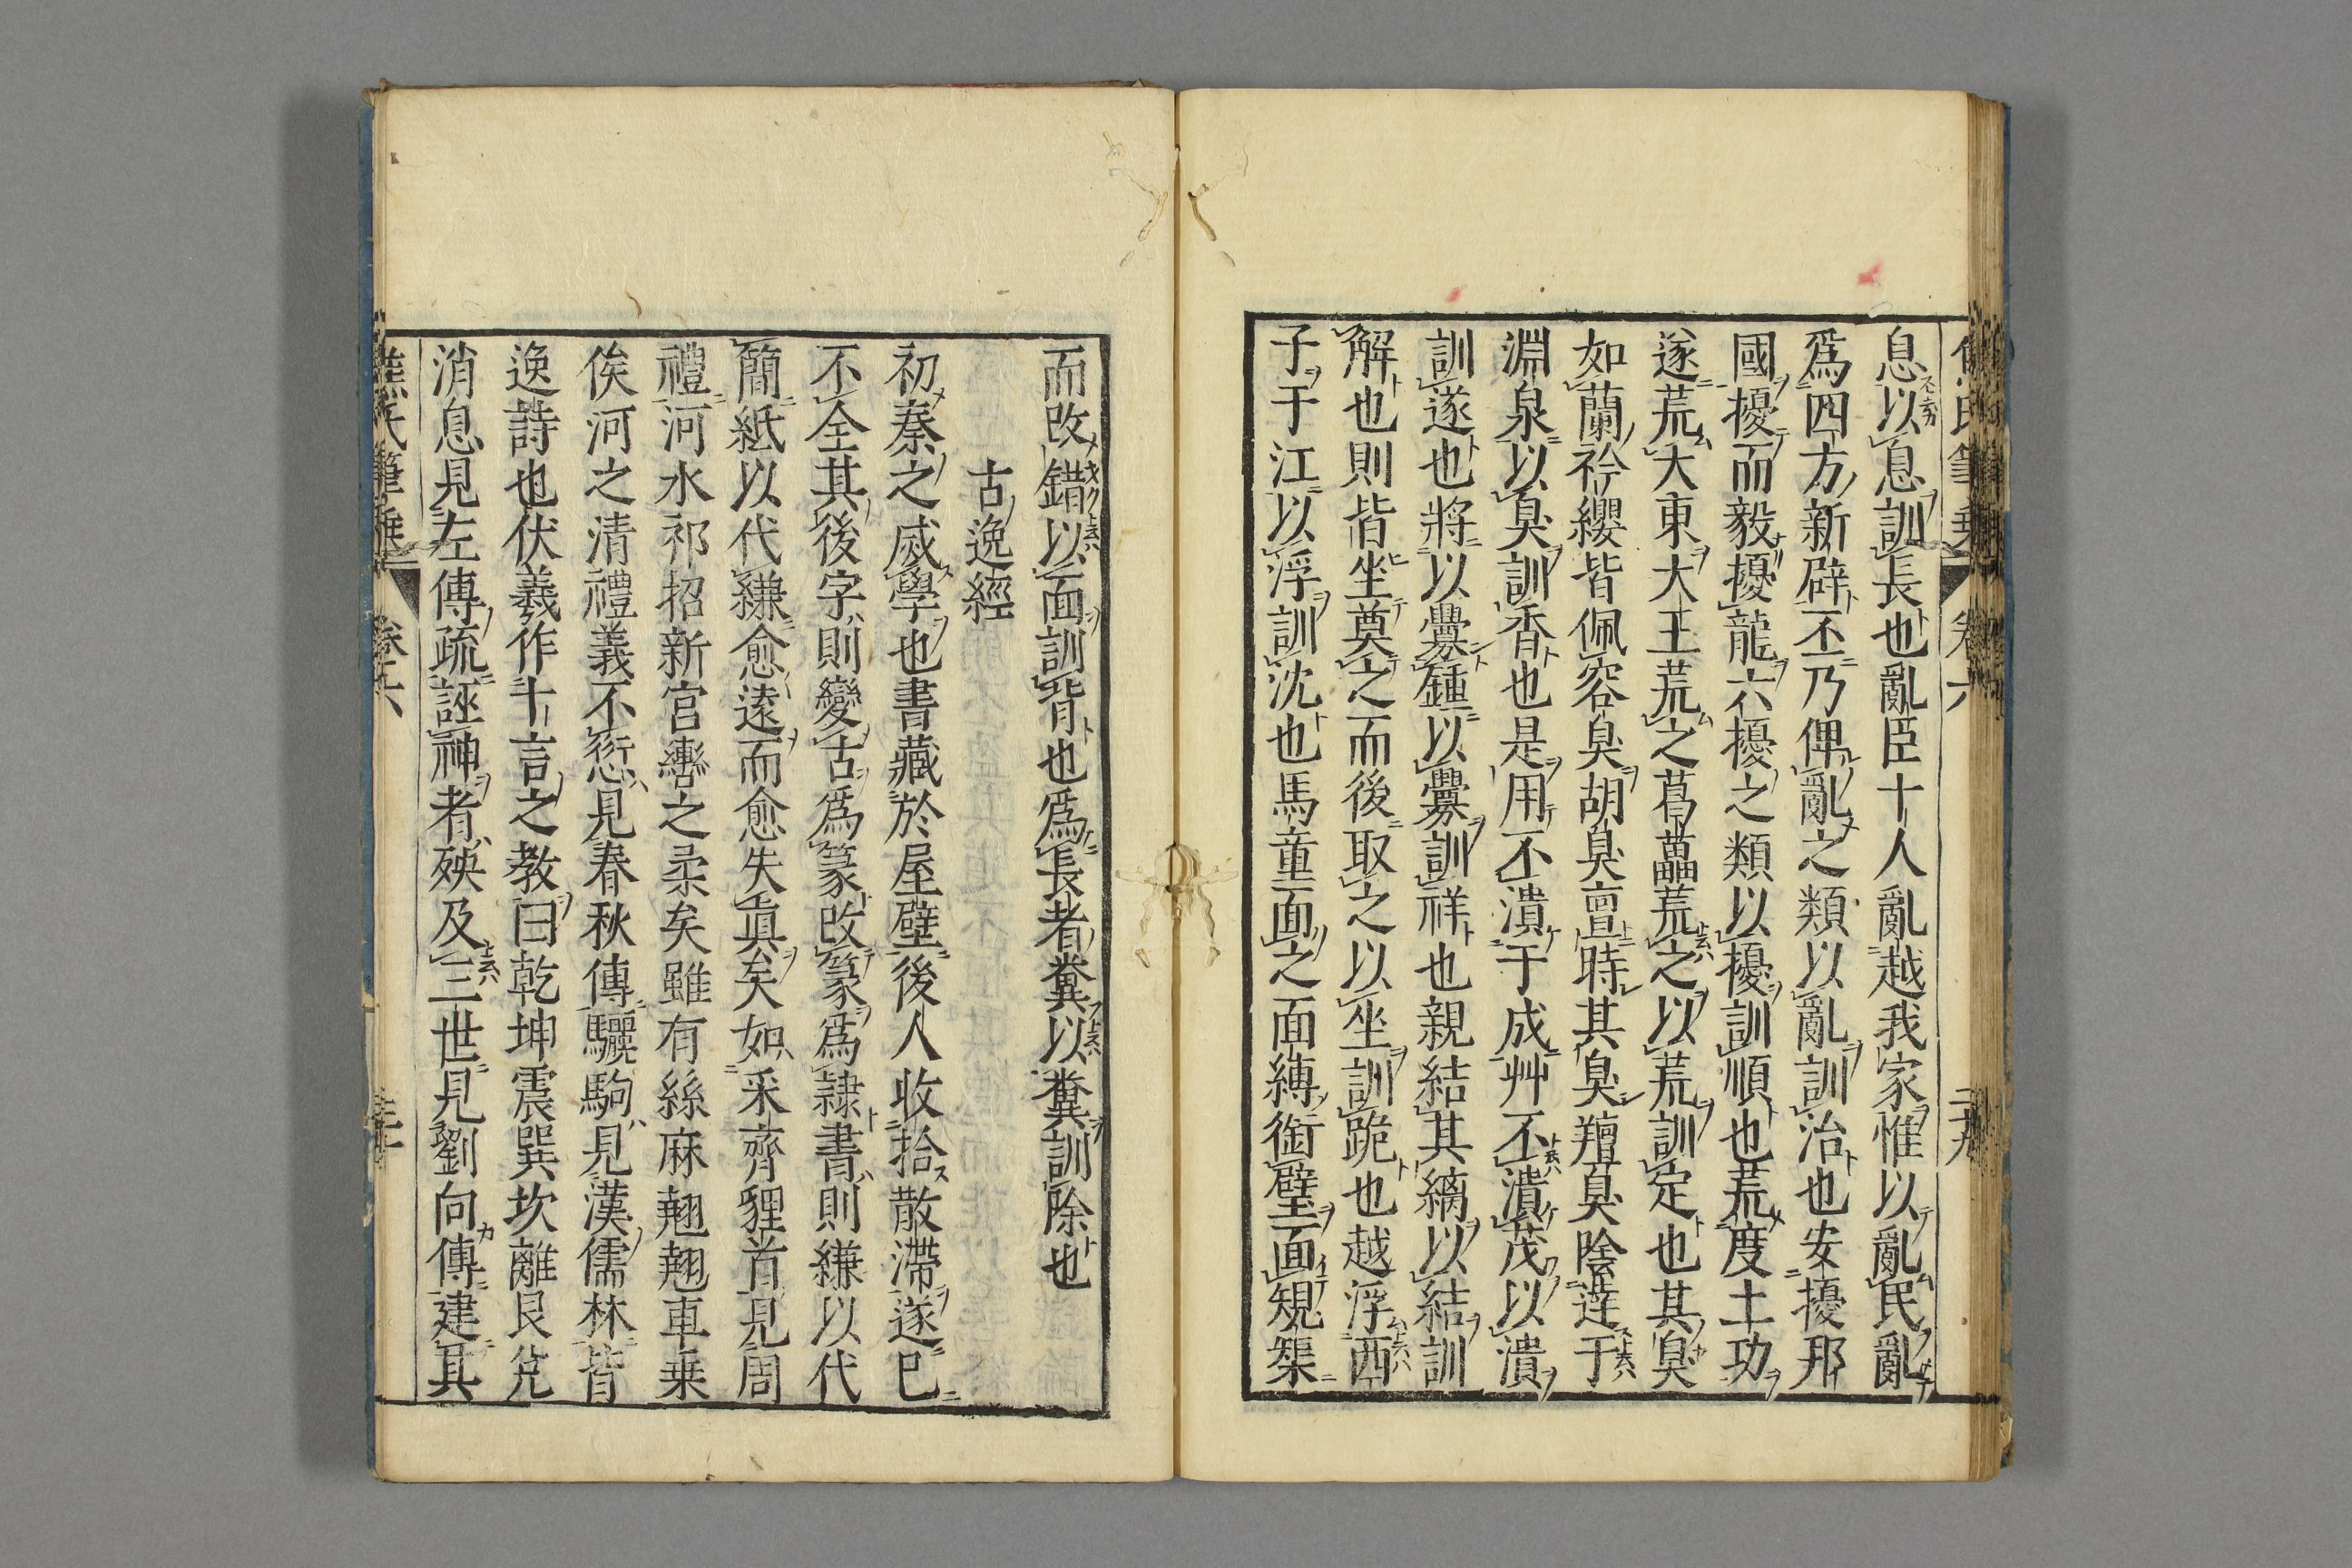 息以息訓長也亂臣十人亂越我家惟以亂民亂
爲四方新辟丕乃俾亂之類以亂訓治也安擾邦
國擾而毅擾龍六擾之類以擾訓順也荒度土功
遂荒大東大王荒之葛藟荒之以荒訓定也其臭
如蘭衿纓皆佩容臭胡臭亶時其臭羶臭陰達于
淵泉以臭訓香也是用不潰于成艸不潰茂以潰
訓遂也將以釁鍾以釁訓祥也親結其縭以結訓
解也則皆坐奠之而後取之以坐訓跪也越浮西
子于江以浮訓沈也馬童面之面縛銜璧面規榘
而改錯以面訓背也爲長者糞以糞訓除也
古逸經
初秦之烕學也書藏於屋壁後人收拾散滯遂已
不全其後字則變古爲篆改篆爲隷書則縑以代
簡紙以代縑愈遠而愈失眞矣如采齊貍首見周
禮河水祁招新宮轡之柔矣雖有絲麻翹翹車乗
俟河之清禮義不愆見春秋傳驪駒見漢儒林皆
逸詩也伏羲作十言之教曰乾坤震巽坎離艮兌
消息見左傳疏誣神者殃及三世見劉向傳建其
焦氏筆乗 卷六